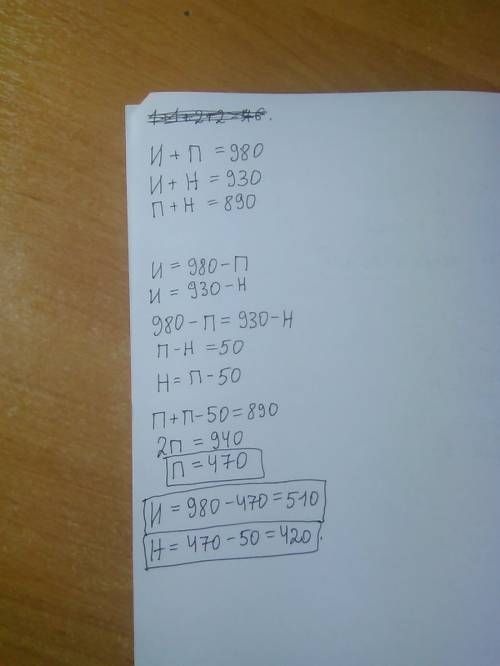 И + П = 980
И + Н = 930
П + Н = 890
И = 980 - П
И = 930 - Н
980 - П = 930 - Н
П - Н = 50
Н = П - 50
П + П - 50 = 890
2П = 940
П = 470
И = 980 - 470 = 510
Н = 470 - 50 = 420.